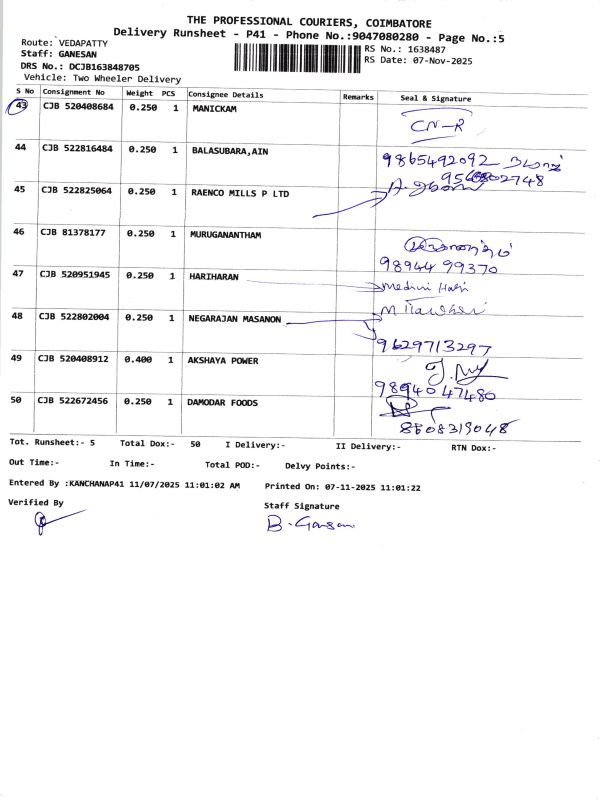 THE PROFESSIONAL COURIERS, COIMBATORE
Delivery Runsheet - P41 - Phone No.:9047080280 - Page No.:5
Route: VEDAPATTY
RS No.: 1638487
Staff: GANESAN
RS Date: 07-Nov-2025
DRS No.: DCJB163848705
Vehicle: Two Wheeler Delivery
S No Consignment No Weight PCS Consignee Details Remarks Seal & Signature
43 CJB 520408684 0.250 1 MANICKAM
CN-R
44 CJB 522816484 0.250 1 BALASUBARA,AIN
9865492092
45 CJB 522825064 0.250 1 RAENCO MILLS P LTD
46 CJB 81378177 0.250 1 MURUGANANTHAM
98944 99370
47 CJB 520951945 0.250 1 HARIHARAN
Medini Hari
48 CJB 522802004 0.250 1 NEGARAJAN MASANON
9629713297
49 CJB 520408912 0.400 1 AKSHAYA POWER
98940 47480
50 CJB 522672456 0.250 1 DAMODAR FOODS
8508319048
Tot. Runsheet:- 5 Total Dox:- 50 I Delivery:- II Delivery:- RTN Dox:-
Out Time:- In Time:- Total POD:- Delvy Points:-
Entered By :KANCHANAP41 11/07/2025 11:01:02 AM Printed On: 07-11-2025 11:01:22
Verified By Staff Signature